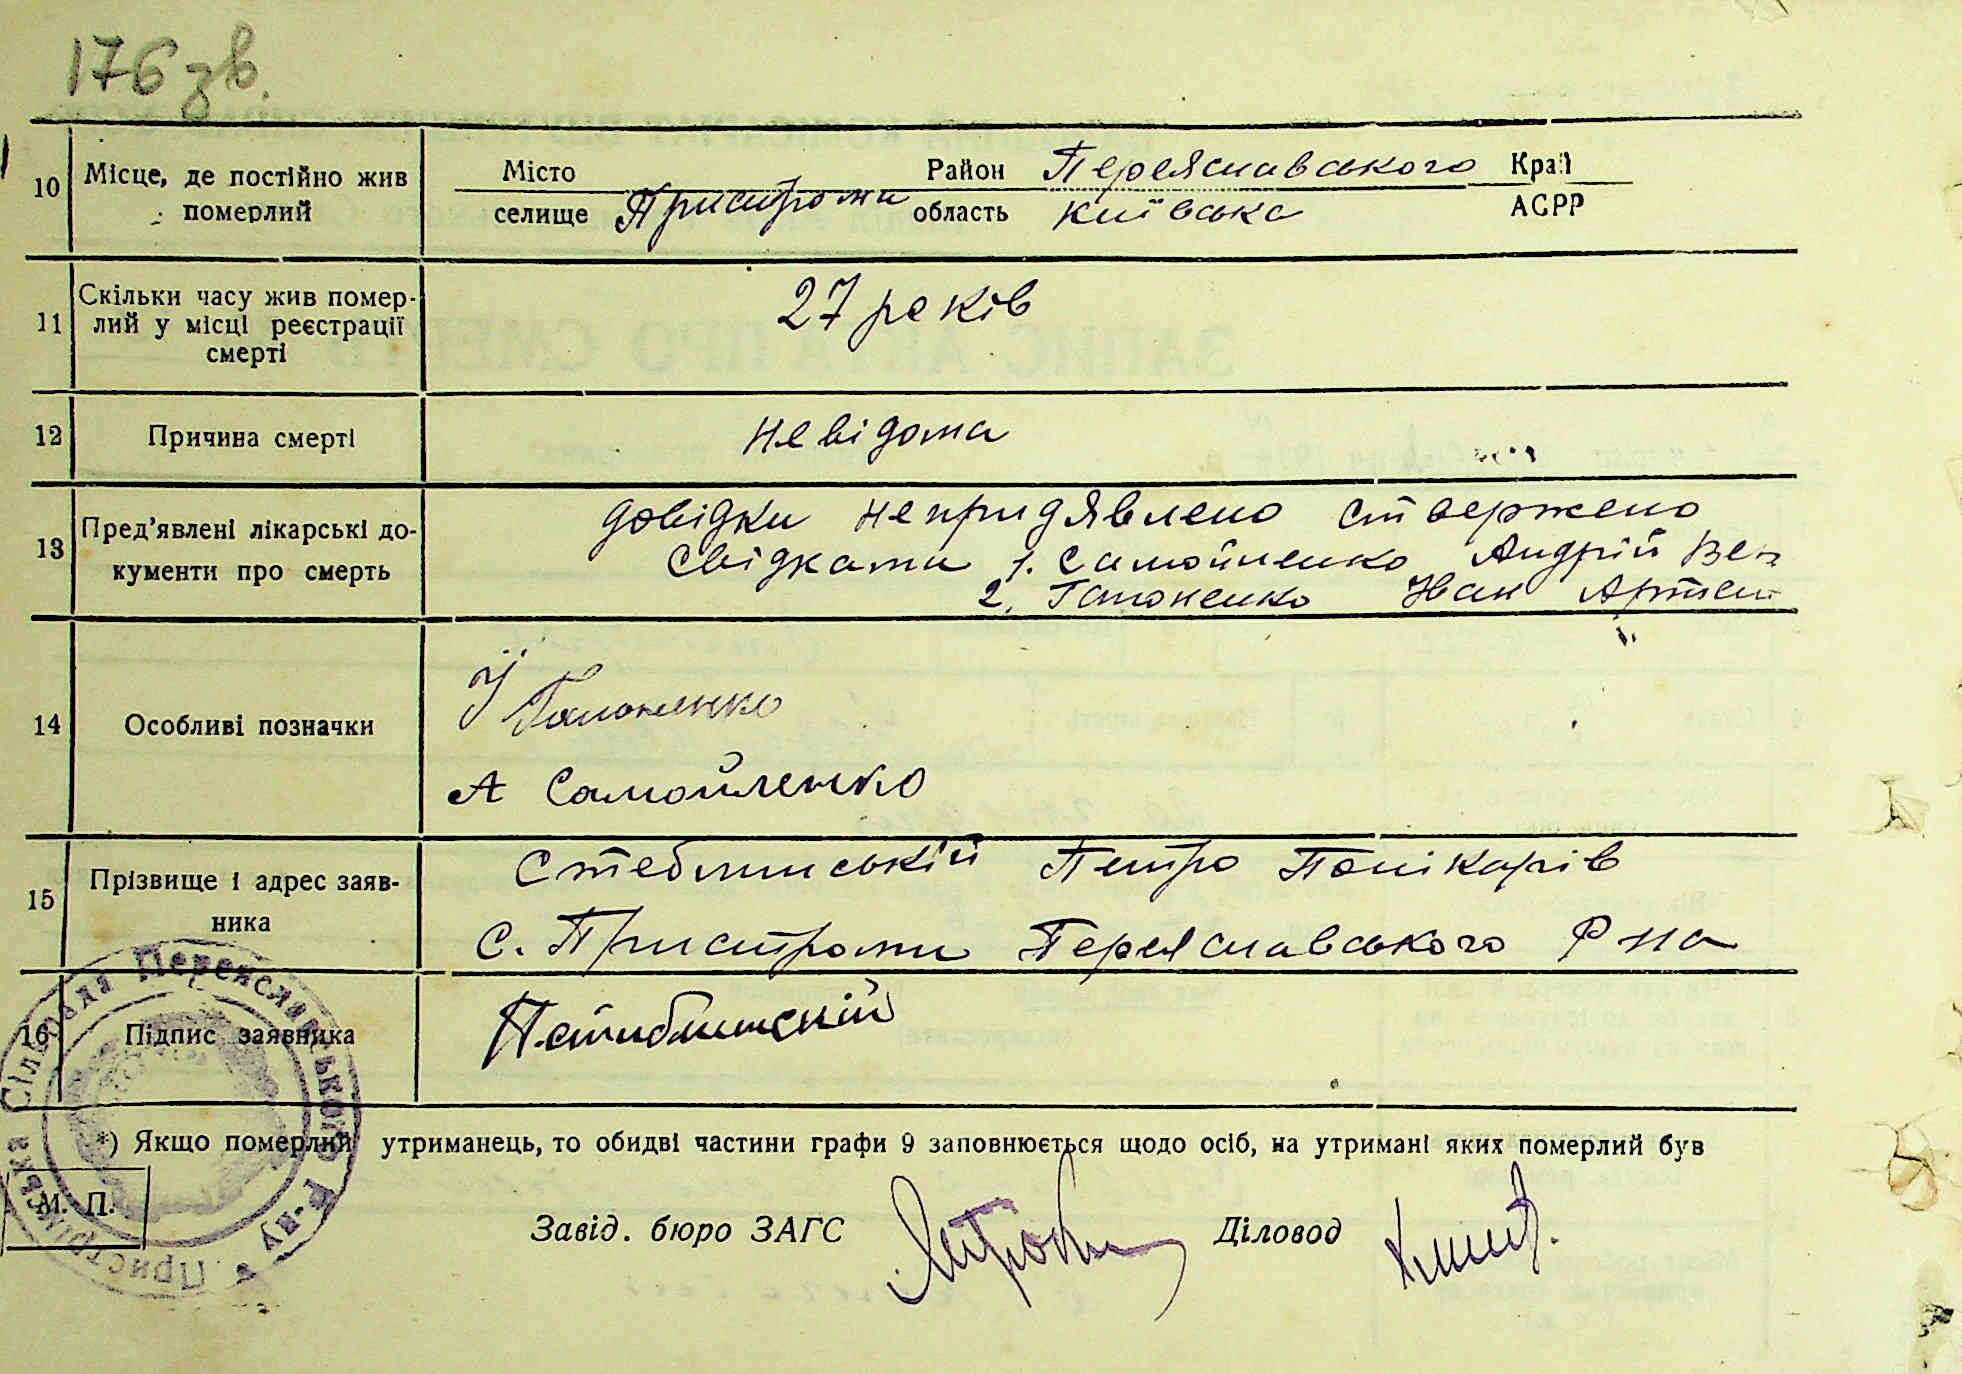 176 зв.
10 Місце, де постійно жив померлий
Місто селище Пристроми
Район Переяславського
область Київська
Край АСРР
11 Скільки часу жив помер-
лий у місці реєстрації
смерті
27 років
12 Причина смерті
невідома
13 Пред'явлені лікарські до-
кументи про смерть
довідки непридявлено ствержено
свідками 1. Самойленко Андрій Вен
2. Гапоненко Іван Артем
14 Особливі позначки
Гапоненко
А Самойленко
15 Прізвище і адрес заяв-
ника
Стеблинській Петро Полікарпів
с. Пристроми Переяславського р на
16 Підпис заявника
*) Якщо померлий утриманець, то обидві частини графи 9 заповнюється щодо осіб, на утримані яких померлий був
М. П.
Завід. бюро ЗАГС
Діловод
Сільрада Переяславського Р-ну